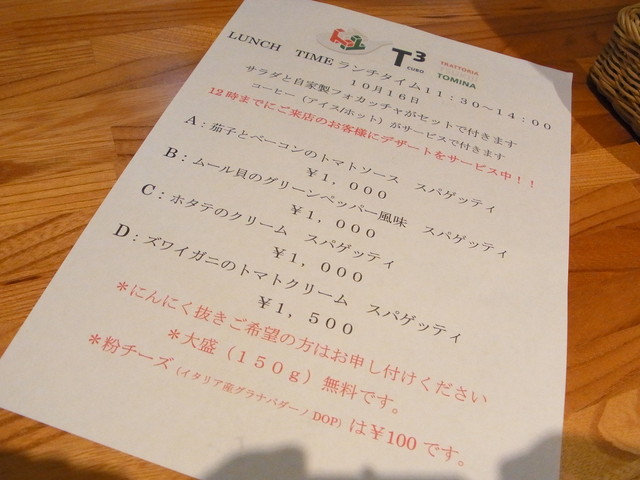 T³
EURO
TRATTORIA
TOMINA
LUNCH TIME ランチタイム11：30～14：00
10月16日
サラダと自家製フォカッチャがセットで付きます
コーヒー（アイス/ホット）がサービスで付きます
12時までにご来店のお客様にデザートをサービス中！！
A：茄子とベーコンのトマトソース スパゲッティ
￥1，000
B：ムール貝のグリーンペッパー風味 スパゲッティ
￥1，000
C：ホタテのクリーム スパゲッティ
￥1，000
D：ズワイガニのトマトクリーム スパゲッティ
￥1，500
＊にんにく抜きご希望の方はお申し付けください
＊大盛（150g）無料です。
＊粉チーズ（イタリア産グラナパダーノDOP）は￥100です。